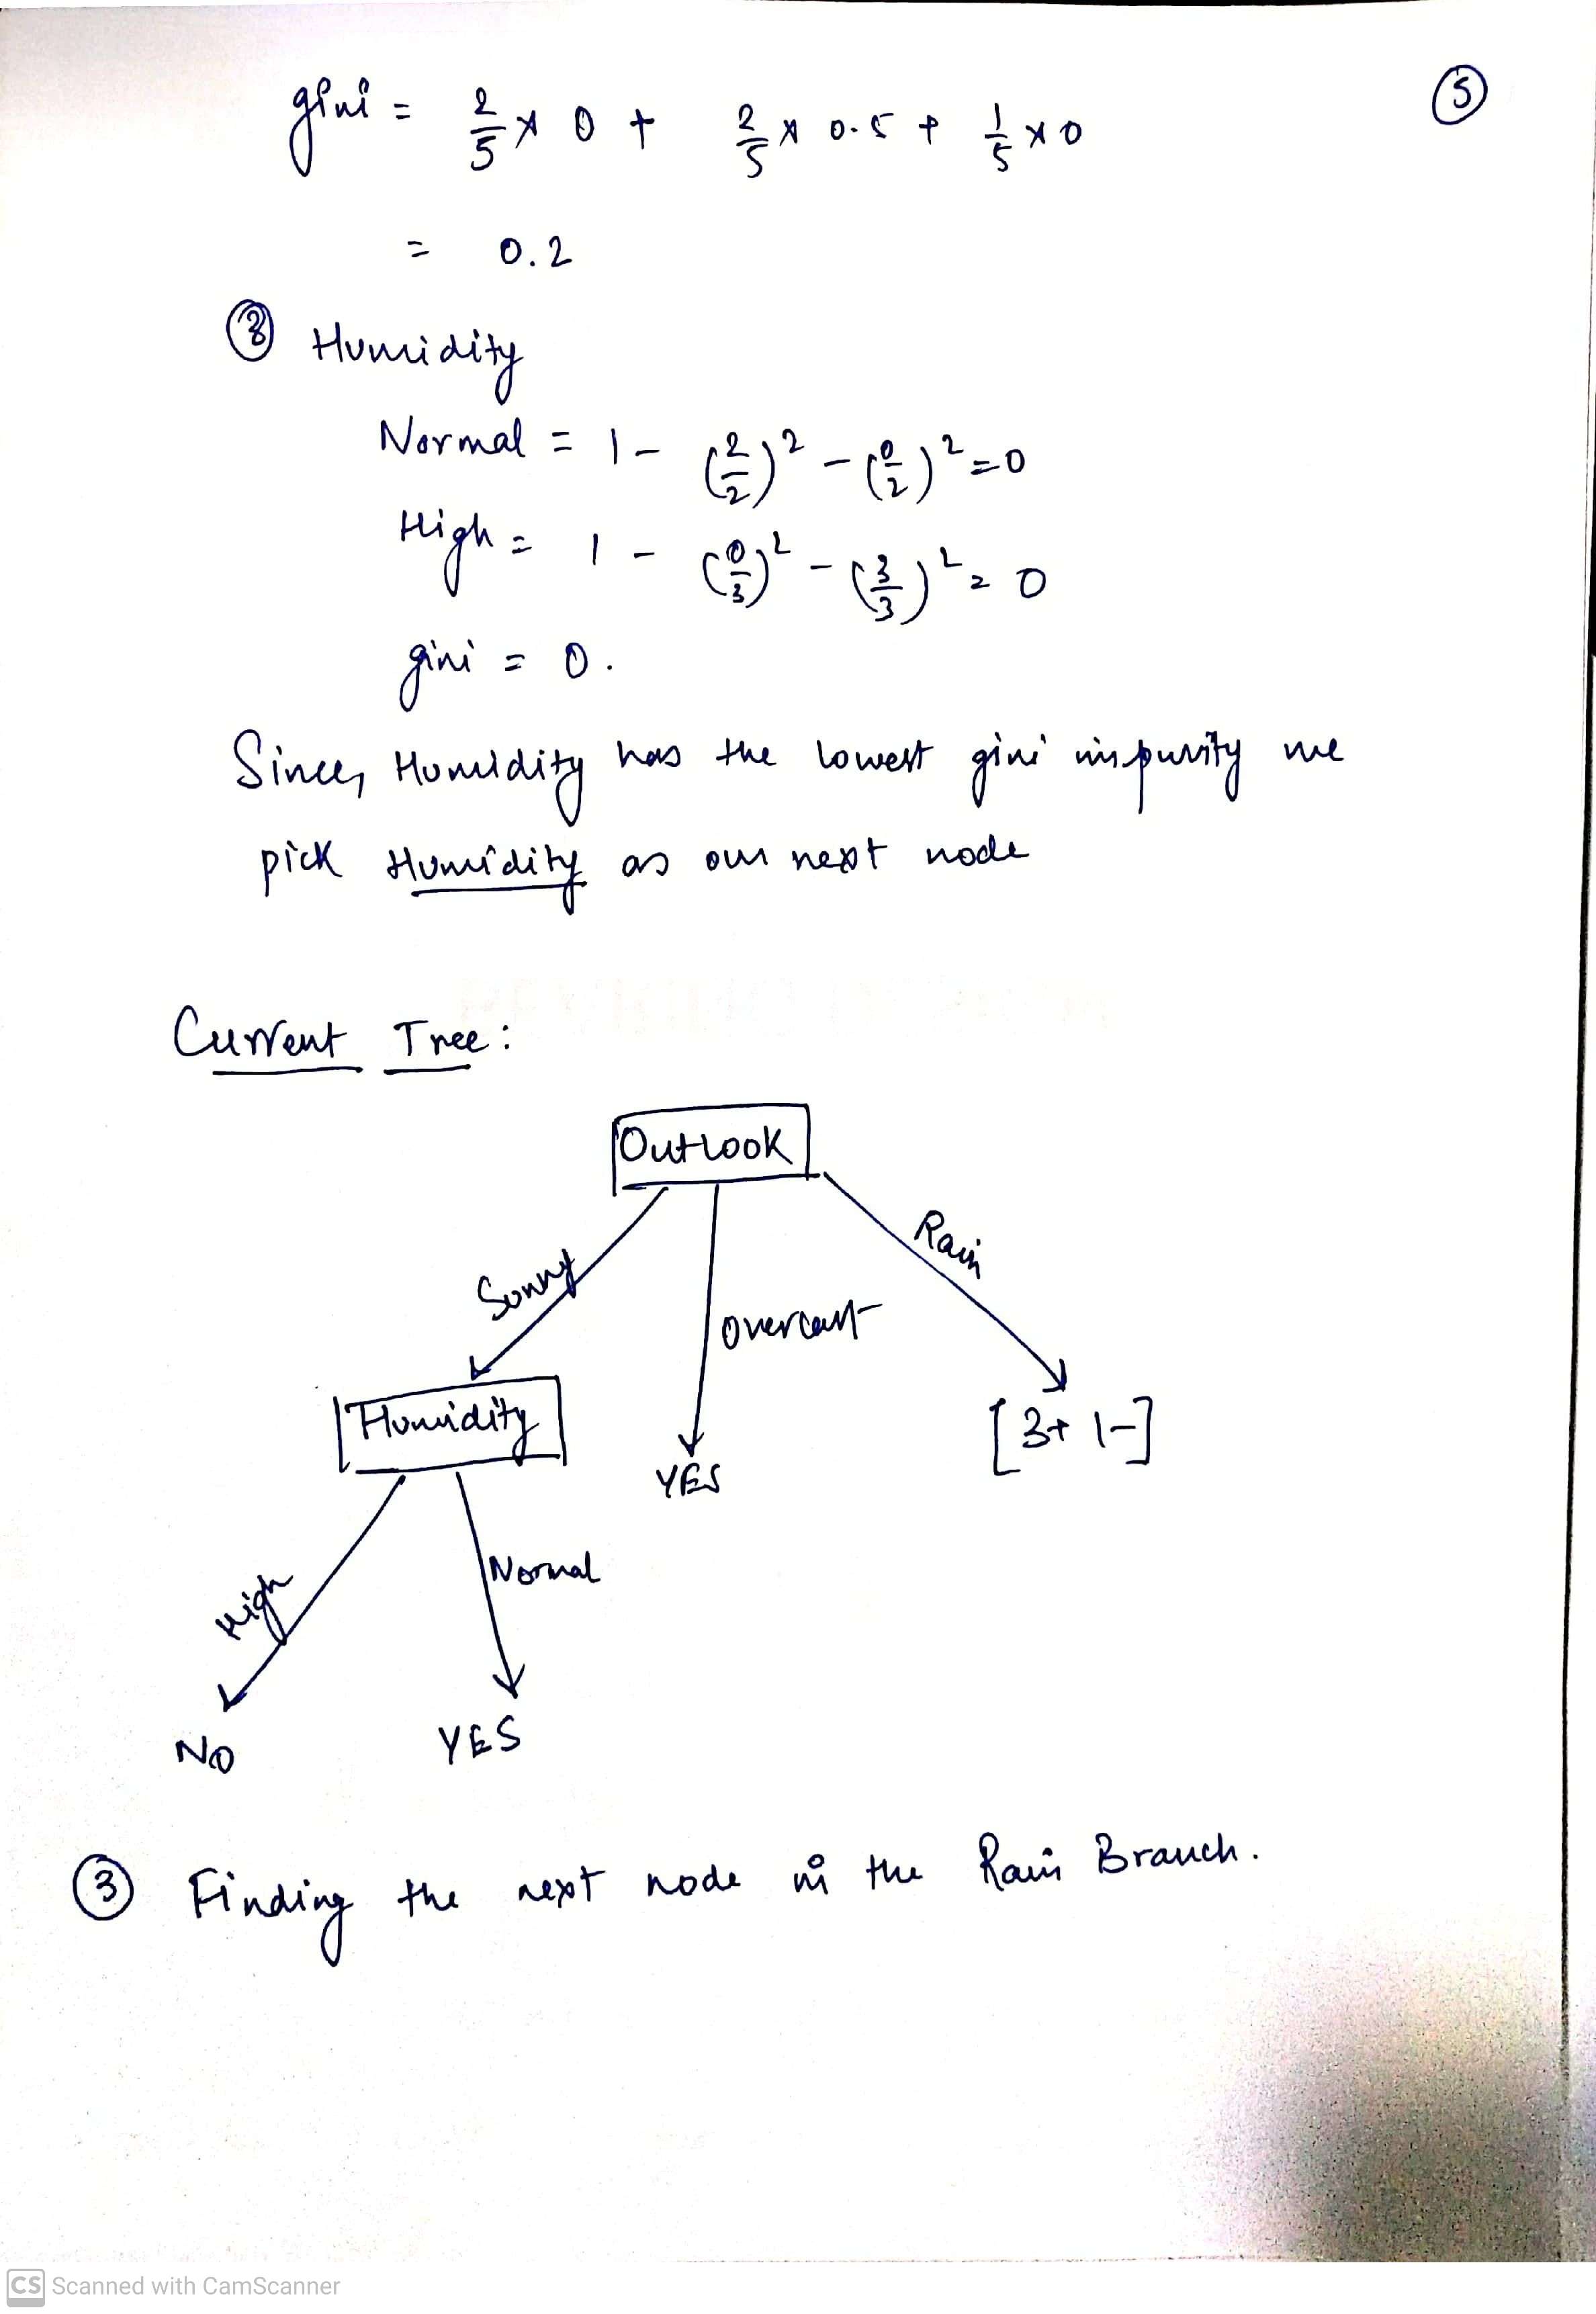 5
gini = 2/5 × 0 + 2/5 × 0.5 + 1/5 × 0
= 0.2
3 Humidity
Normal = 1 - (2/2)² - (0/2)² = 0
High = 1 - (0/3)² - (3/3)² = 0
gini = 0.
Since, Humidity has the lowest gini impurity we
pick Humidity as our next node
Current Tree:
Outlook
Sunny
Overcast
Rain
Humidity
YES
[3+ 1-]
High
Normal
NO
YES
3 Finding the next node in the Rain Branch.
CS Scanned with CamScanner